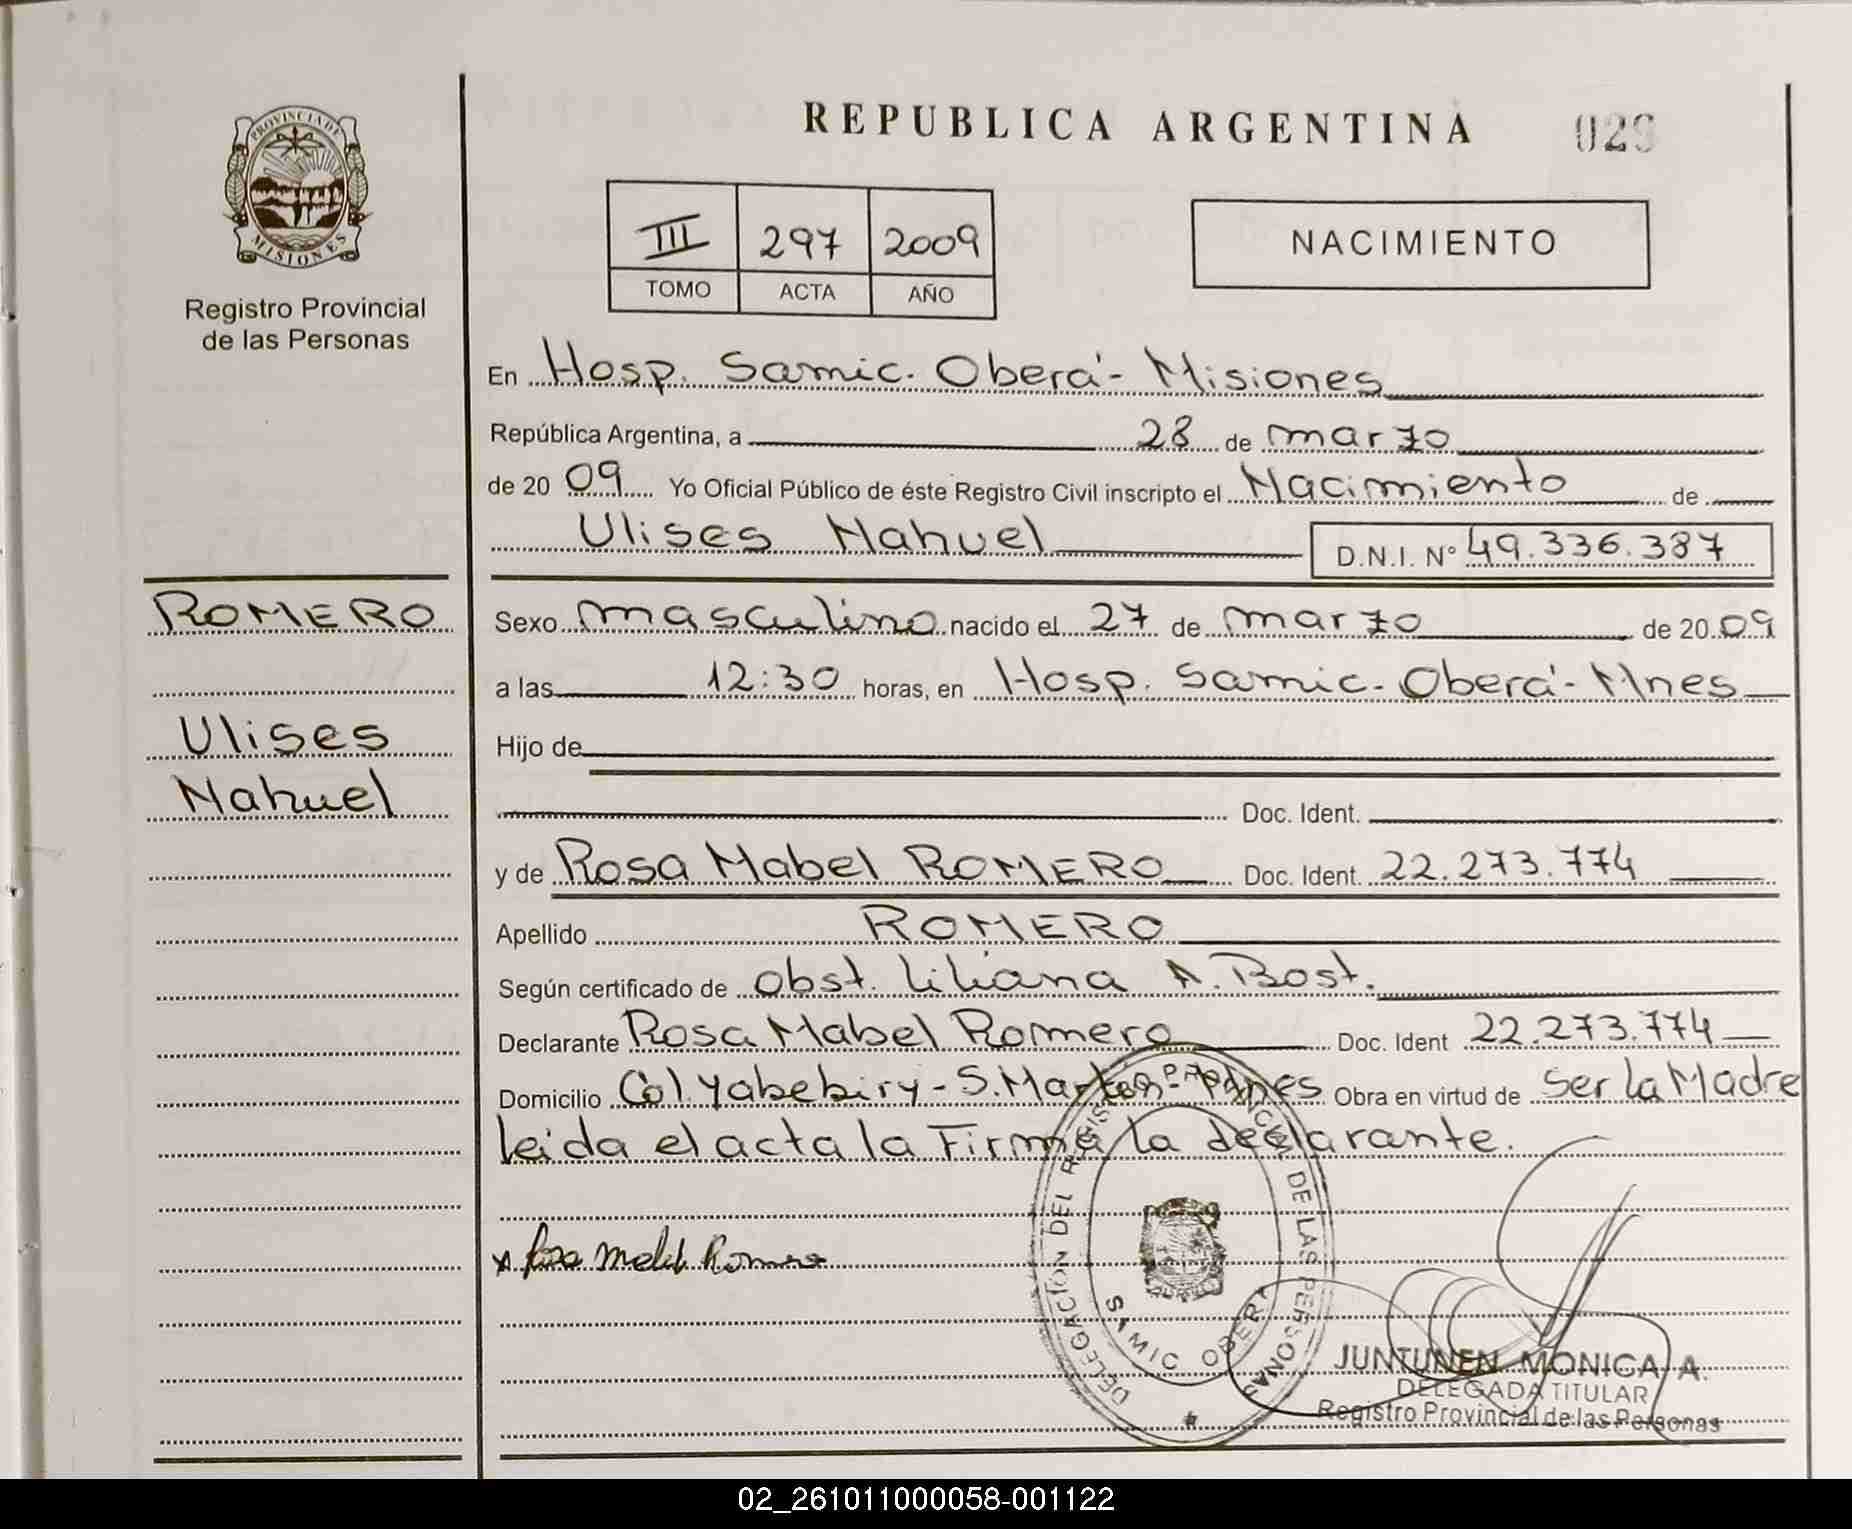 REPUBLICA ARGENTINA
029
PROVINCIA DE
MISIONES
Registro Provincial
de las Personas
III 297 2009
TOMO ACTA AÑO
NACIMIENTO
En Hosp. Samic. Oberá - Misiones
República Argentina, a 28 de marzo
de 20 09 Yo Oficial Público de éste Registro Civil inscripto el Nacimiento de
Ulises Nahuel D.N.I. Nº 49.336.387
ROMERO
Ulises
Nahuel
Sexo masculino nacido el 27 de marzo de 20 09
a las 12:30 horas, en Hosp. Samic. Oberá - Mnes
Hijo de
Doc. Ident.
y de Rosa Mabel ROMERO Doc. Ident. 22.273.774
Apellido ROMERO
Según certificado de Obst. Liliana A. Bost.
Declarante Rosa Mabel Romero Doc. Ident 22.273.774
Domicilio Col. Yabebiry - S. Martín - Mnes Obra en virtud de Ser la Madre
leida el acta la Firma la declarante.
x Rosa Mabel Romero
DELEGACIÓN DEL REGISTRO PROVINCIAL DE LAS PERSONAS
SAMIC OBERA
JUNTUNEN MONICA A.
DELEGADA TITULAR
Registro Provincial de las Personas
02_261011000058-001122